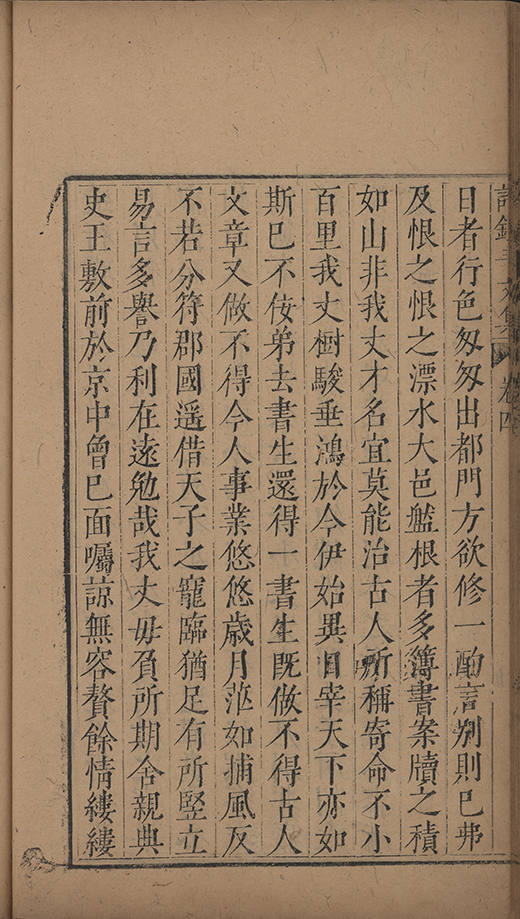 日者行色匆匆出都門方欲修一酌言別則已弗
及恨之恨之漂水大邑盤根者多簿書案牘之積
如山非我丈才名宜莫能治古人所稱寄命不小
百里我丈樹駿垂鴻於今伊始異日宰天下亦如
斯已不佞弟去書生還得一書生旣做不得古人
文章又做不得今人事業悠悠歲月茫如捕風反
不若分符郡國遥借天子之寵臨猶足有所竪立
易言多譽乃利在遠勉哉我丈毋負所期舍親典
史王敷前於京中曾已面囑諒無容贅餘情縷縷
卷四